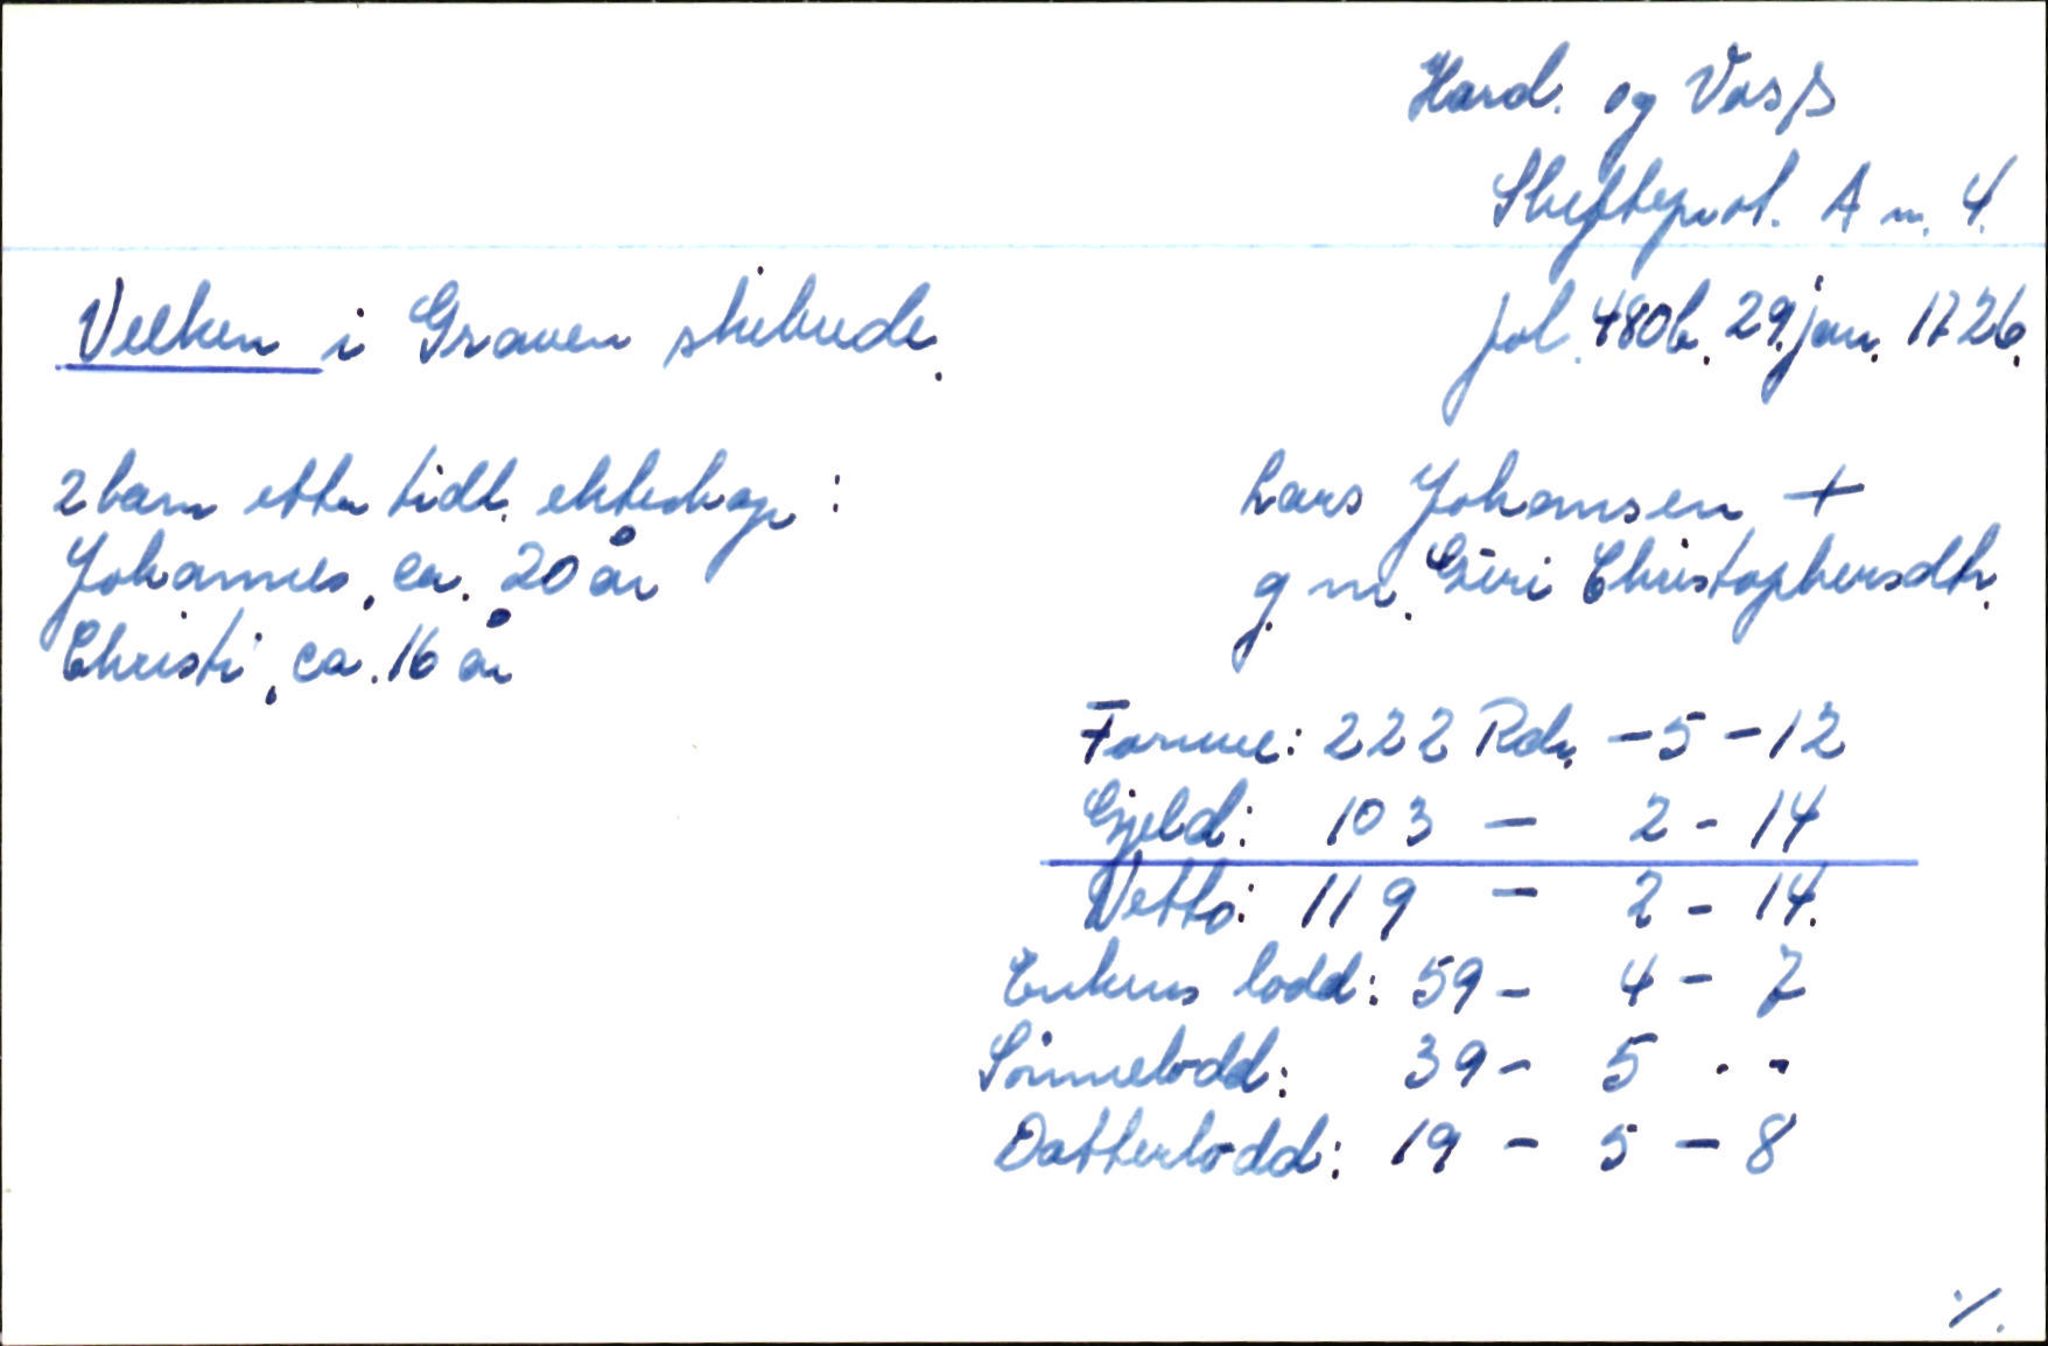 Hard. og Voss
Skifteprot. A nr. 4.
fol. 480b. 29. jan. 1726.
Velken i Graven skibrede.
2 barn etter tidl. ekteskap:
Johannes, ca. 20 år
Christi, ca. 16 år
Lars Johansen +
g. m. Giri Christophersdtr.
Formue: 222 Rdr. - 5 - 12
Gjeld: 103 - 2 - 14
Netto: 119 - 2 - 14.
Enkens lodd: 59 - 4 - 7
Sönnelodd: 39 - 5 - -
Datterlodd: 19 - 5 - 8
./.